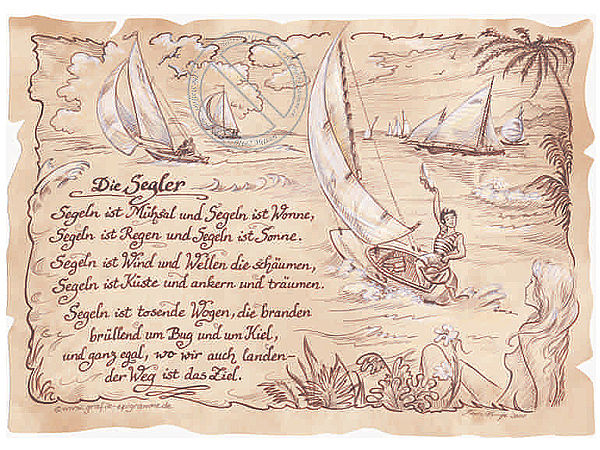 Die Segler
Segeln ist Mühsal und Segeln ist Wonne,
Segeln ist Regen und Segeln ist Sonne.
Segeln ist Wind und Wellen die schäumen,
Segeln ist Küste und ankern und träumen.
Segeln ist tosende Wogen, die branden
brüllend um Bug und um Kiel,
und ganz egal, wo wir auch landen–
der Weg ist das Ziel.
©www.grafik-epigramme.de